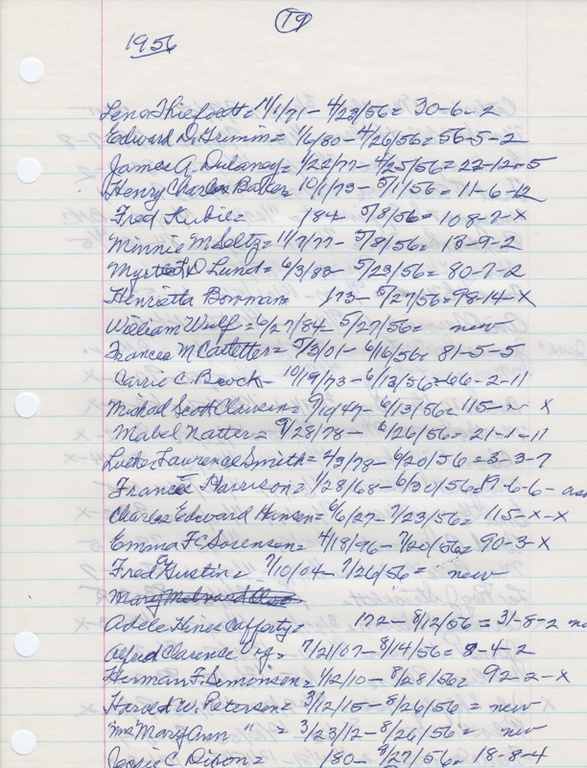 T9
1956
Lena Thiefoett = 11/1/71 - 4/23/56 = 30-6-2
Edward D. Grimm = 1/6/80 - 4/26/56 = 56-5-2
James A. Dulaney = 1/22/77 - 4/25/56 = 22-12-5
Henry Charles Baker = 10/1/73 - 5/1/56 = 11-6-12
Fred Kubie = 184 - 5/8/56 = 108-7-X
Minnie M Soltz = 11/7/77 - 5/8/56 = 18-9-2
Myrtle D Lund = 6/3/83 - 5/23/56 = 80-7-2
Henrietta Borman 173 - 5/27/56 = 98-14-X
William Wulf = 6/27/84 - 5/27/56 = new
Frances M Castetter = 5/3/01 - 6/16/56 = 81-5-5
Carrie C. Beock - 10/19/73 - 6/13/56 = 66-2-11
Michael Scott Clausen = 9/10/47 - 6/13/56 = 115-X-X
Mabel Natter = 9/28/78 - 6/26/56 = 21-1-11
Luther Lawrence Smith = 4/3/78 - 6/20/56 = 3-3-7
Frances Harrison = 1/28/68 - 6/30/56 = 89-6-6 -
Charles Edward Hansen = 6/6/27 - 7/23/56 = 115-X-X
Emma F C Sorensen = 4/18/96 - 7/20/56 = 90-3-X
Fred Gustin = 7/10/04 - 7/26/56 = new
Adele Hines Cafferty = 172 - 8/12/56 = 31-8-2
Alfred Clarence = 7/21/07 - 8/14/56 = 9-4-2
Herman F. Simonsen = 1/12/10 - 8/28/56 = 92-2-X
Harold W. Peterson = 3/12/15 - 8/26/56 = new
"Mrs" Mary Ann " = 3/23/12 - 8/26/56 = new
Jessie C. Dixon = 180 - 9/27/56 = 18-8-4